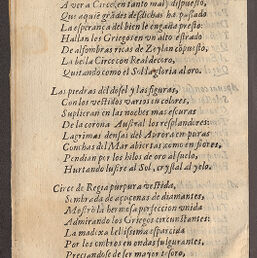 A ver a Circe, en tanto mal, dispuesto,
Que aquie grandes desdichas ha passado
La esperança del bien le engaña presto:
Hallan los Griegos en vn alto estrado
De alfombras ricas de Zeylan cõpuesto,
La bella Circe con Real decoro,
Quitando como el Sol la gloria al oro.
Las piedras del dosel y las figuras,
Con los vestidos varios en colores,
Suplieran en las noches mas escuras
De la corona Austral los resplandores:
Lagrimas densas del Aurora en puras
Conchas del Mar abiertas como en flores,
Pendian por los hilos de oro al suelo,
Hurtando lustre al Sol, crystal al yelo.
Circe de Regia purpura vestida,
Sembrada de açucenas de diamantes,
Mostrò la hermosa perfeccion vnida
Admirando los Griegos circunstantes:
La madexa bellissima esparzida
Por los ombros en ondas fulgurantes,
Preciandose de ser mayor tesoro,